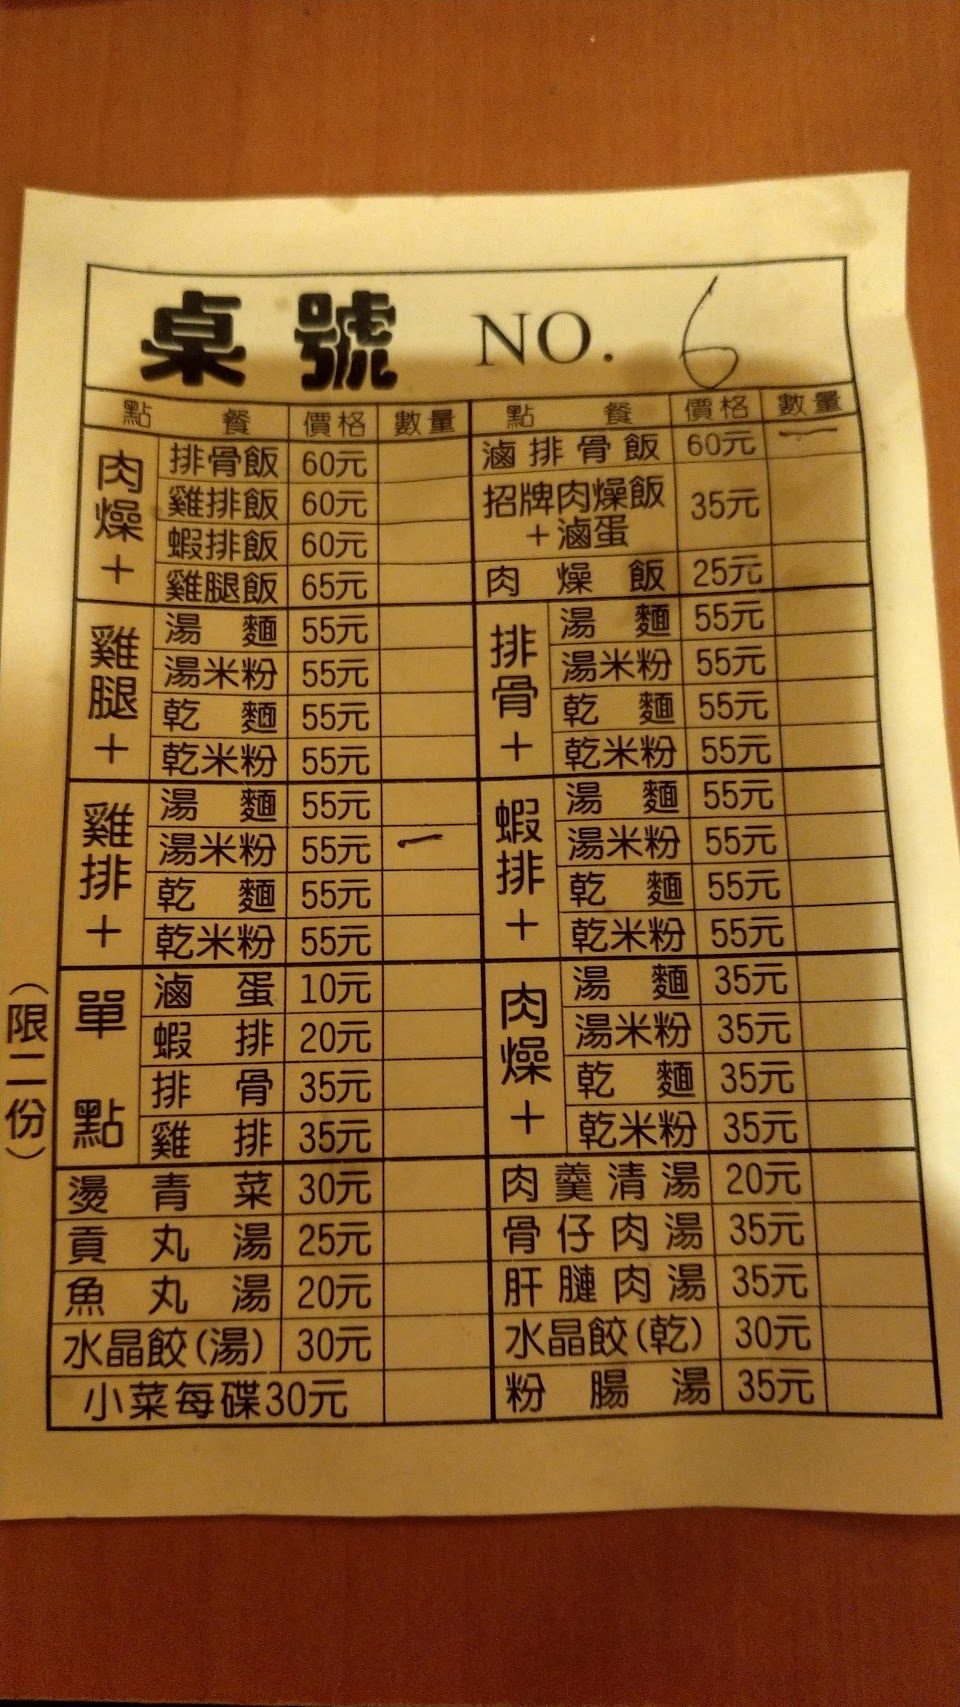 桌號 NO. 6
點餐 價格 數量 點餐 價格 數量
肉燥+ 排骨飯 60元
雞排飯 60元
蝦排飯 60元
雞腿飯 65元
滷排骨飯 60元 一
招牌肉燥飯+滷蛋 35元
肉燥飯 25元
雞腿+ 湯麵 55元
湯米粉 55元
乾麵 55元
乾米粉 55元
排骨+ 湯麵 55元
湯米粉 55元
乾麵 55元
乾米粉 55元
雞排+ 湯麵 55元
湯米粉 55元 一
乾麵 55元
乾米粉 55元
蝦排+ 湯麵 55元
湯米粉 55元
乾麵 55元
乾米粉 55元
(限二份)
單點 滷蛋 10元
蝦排 20元
排骨 35元
雞排 35元
肉燥+ 湯麵 35元
湯米粉 35元
乾麵 35元
乾米粉 35元
燙青菜 30元
貢丸湯 25元
魚丸湯 20元
水晶餃(湯) 30元
小菜每碟30元
肉羹清湯 20元
骨仔肉湯 35元
肝膁肉湯 35元
水晶餃(乾) 30元
粉腸湯 35元